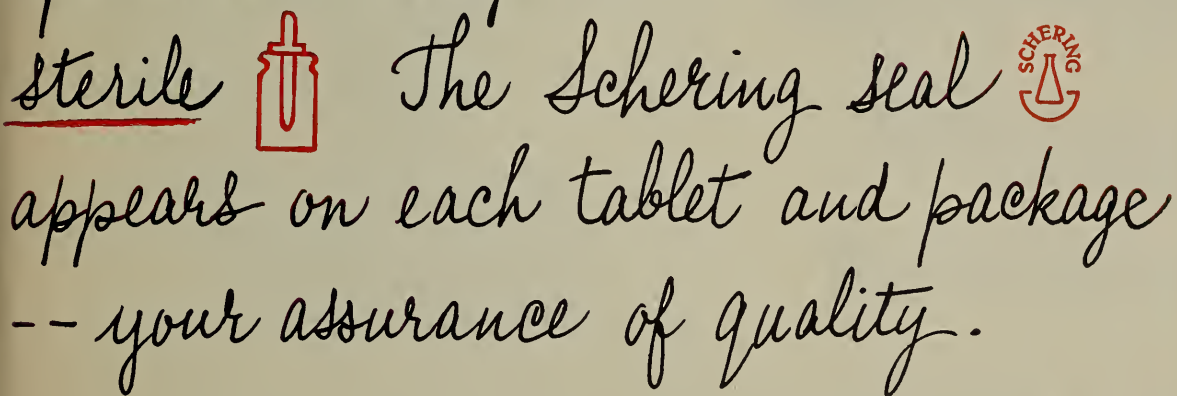 sterile The Schering seal SCHERING
appears on each tablet and package
-- your assurance of quality.